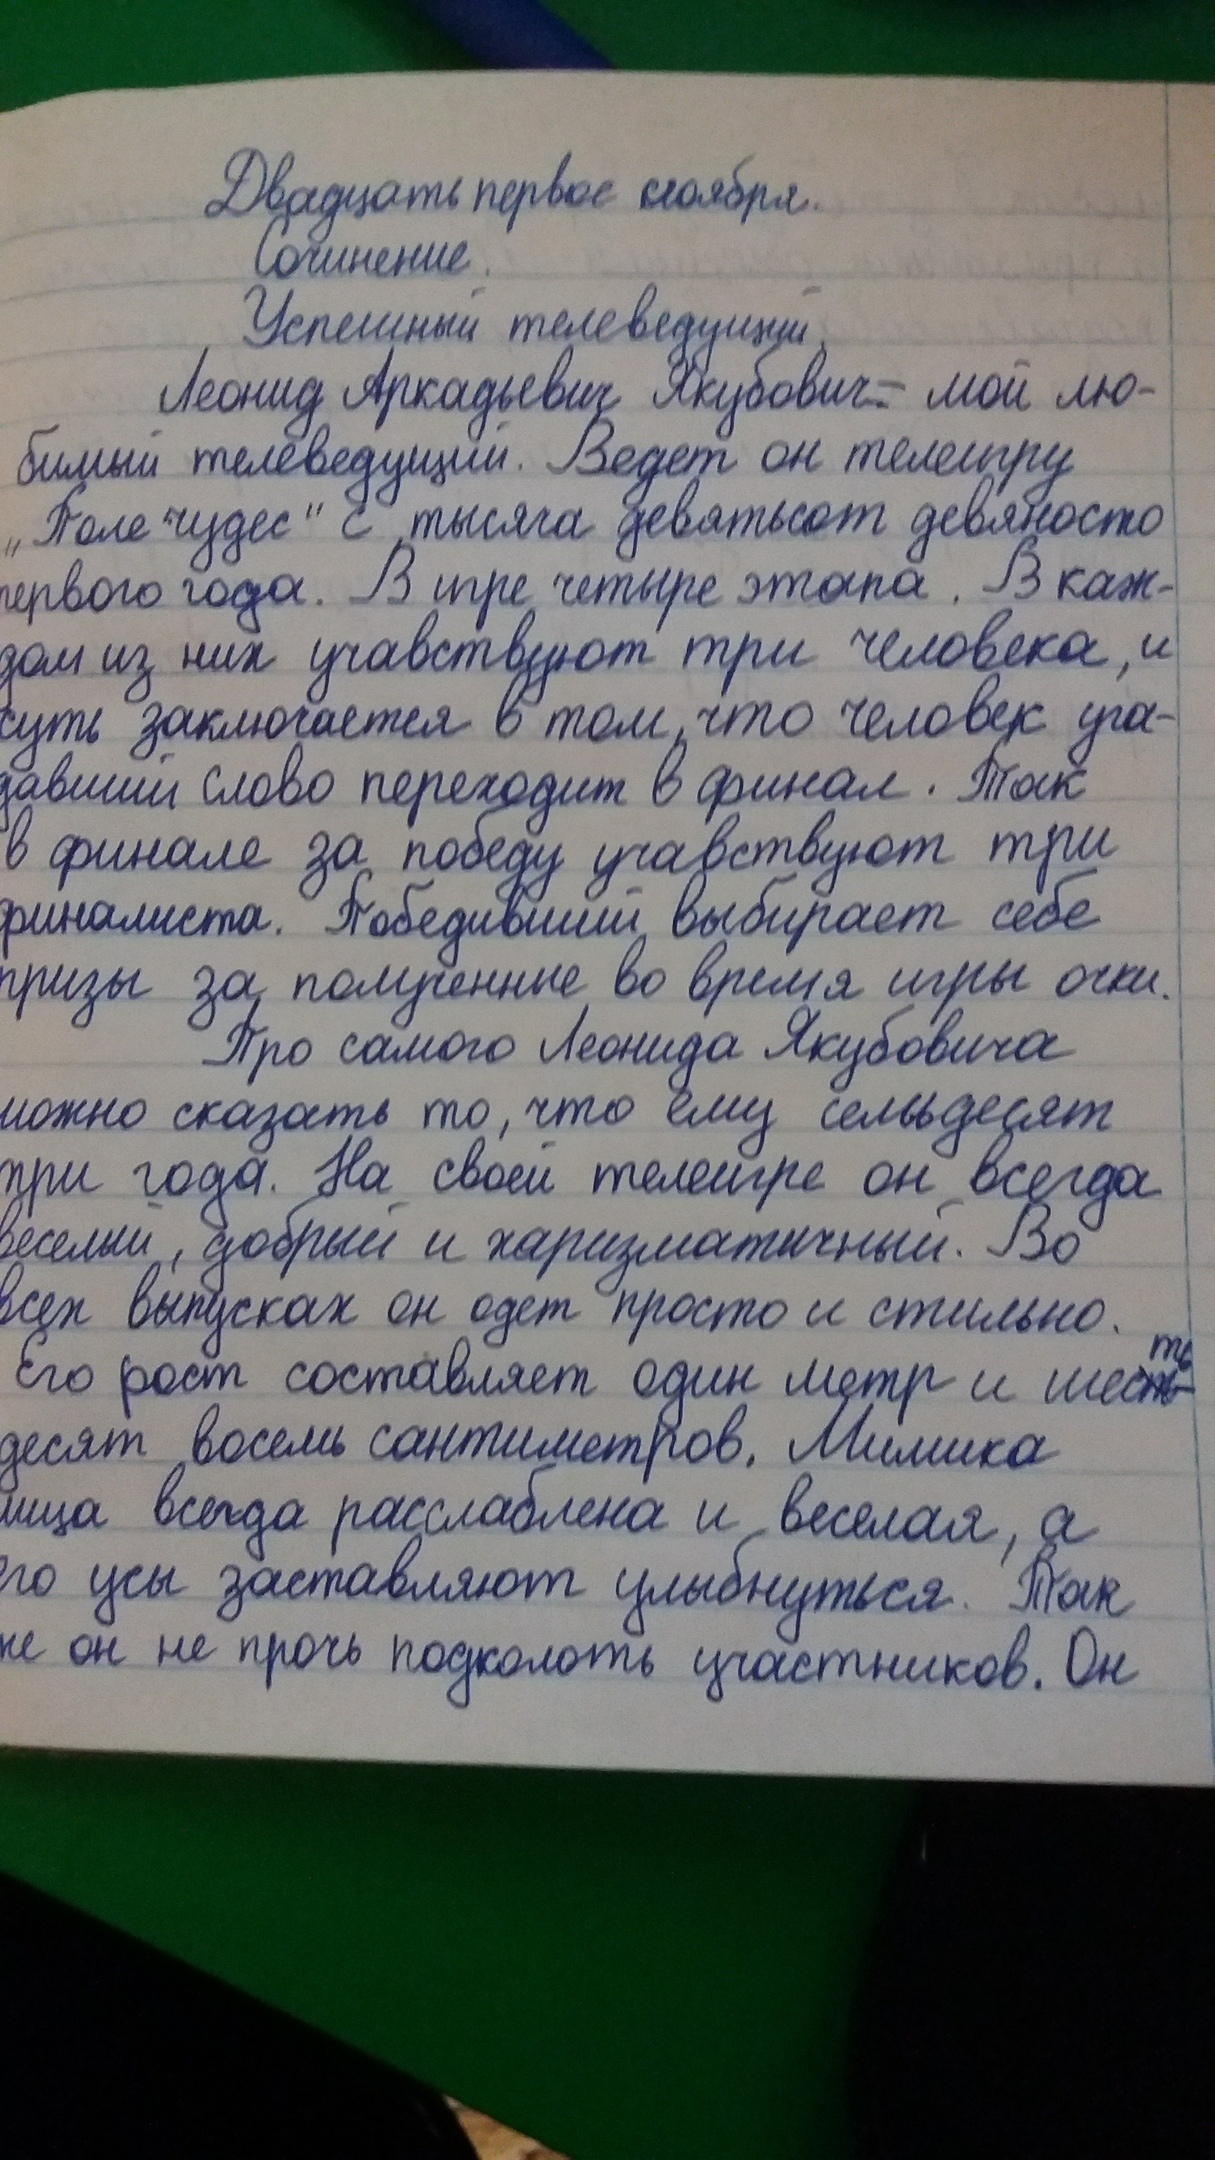 Двадцать первое ноября.
Сочинение.
Успешный телеведущий.
Леонид Аркадьевич Якубович - мой лю-
бимый телеведущий. Ведет он телеигру
„Поле чудес" с тысяча девятьсот девяносто
первого года. В игре четыре этапа. В каж-
дом из них учавствуют три человека, и
суть заключается в том, что человек уга-
давший слово переходит в финал. Так
в финале за победу учавствуют три
финалиста. Победивший выбирает себе
призы за полученные во время игры очки.
Про самого Леонида Якубовича
можно сказать то, что ему семьдесят
три года. На своей телеигре он всегда
веселый, добрый и харизматичный. Во
всех выпусках он одет просто и стильно.
Его рост составляет один метр и шесть-
десят восемь сантиметров. Мимика
лица всегда расслаблена и веселая, а
его усы заставляют улыбнуться. Так
же он не прочь подколоть участников. Он